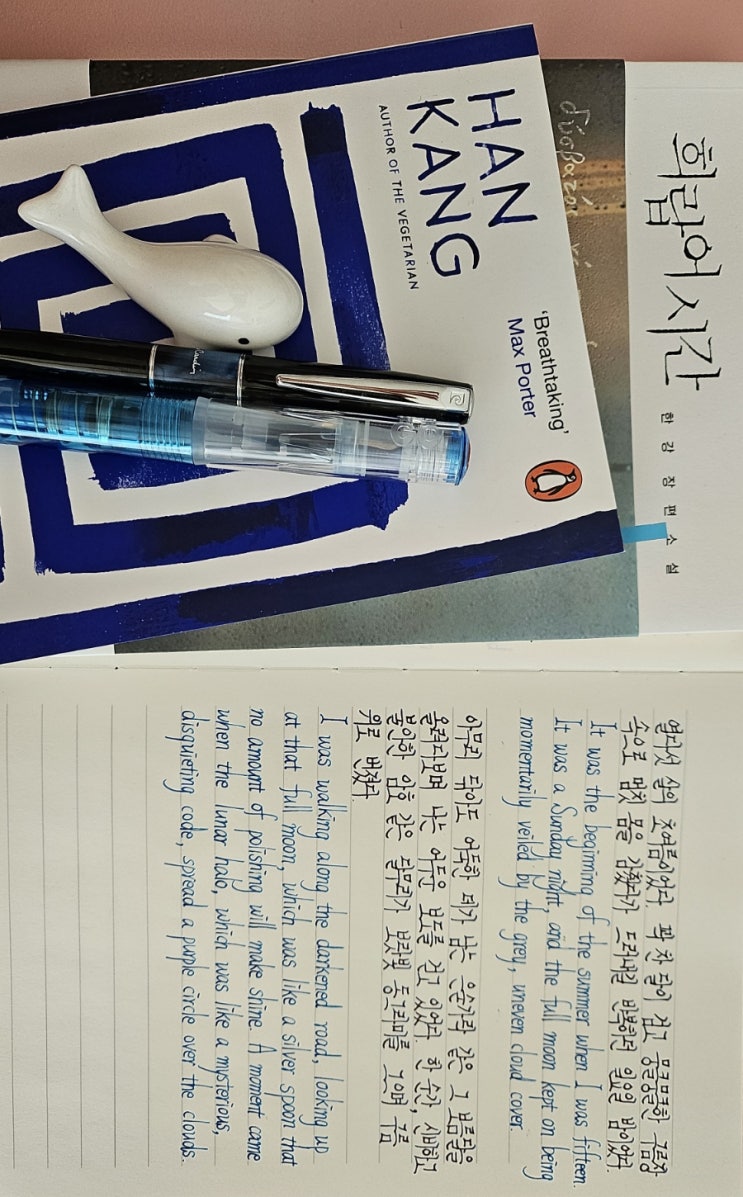 희랍어 시간
한강 장편소설
HAN
KANG
AUTHOR OF THE VEGETARIAN
'Breathtaking'
Max Porter
열다섯 살의 초여름이었다. 꽉 찬 달이 검고 뭉클뭉클한 구름장
속으로 멈칫 몸을 감췄다가 드러내길 반복하던 일요일 밤이었다.
It was the beginning of the summer when I was fifteen.
It was a Sunday night, and the full moon kept on being
momentarily veiled by the grey, uneven cloud cover.
아무리 닦아도 어둑한 데가 남는 은숟가락 같은 그 보름달을
올려다보며 나는 어두운 보도를 걷고 있었다. 한 순간, 신비하고
불안한 암호 같은 달무리가 보랏빛 동그라미를 그으며 구름
위로 번졌다.
I was walking along the darkened road, looking up
at that full moon, which was like a silver spoon that
no amount of polishing will make shine. A moment came
when the lunar halo, which was like a mysterious,
disquieting code, spread a purple circle over the clouds.